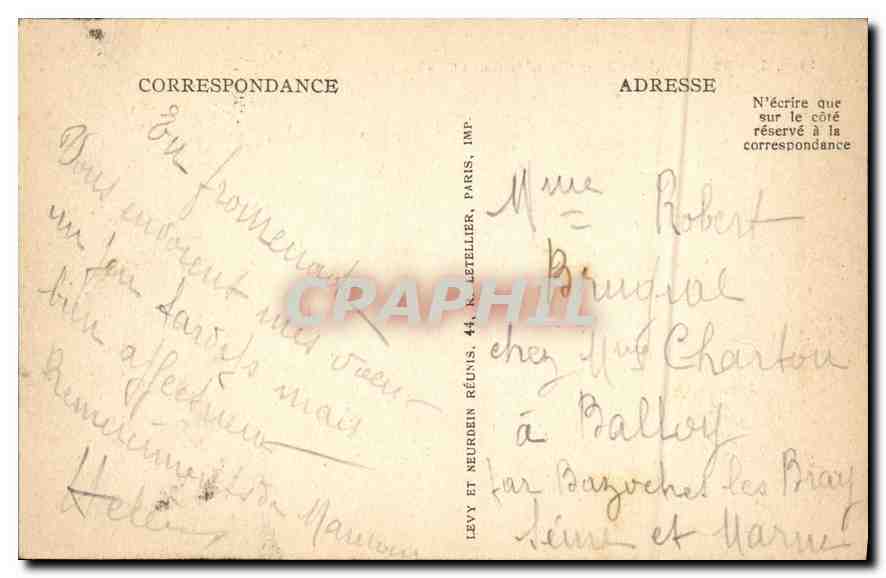 CORRESPONDANCE
En promenade
Vous envoient mes vœux
un peu tardifs mais
bien affectueux
Remerciements de Maman
ADRESSE
N'écrire que
sur le côté
réservé à la
correspondance
LEVY ET NEURDEIN RÉUNIS, 44, R. LETELLIER, PARIS, IMP.
Mme Robert
chez Mme Charton
à Balloy
par Bazoches les Bray
Seine et Marne
CPARHIL